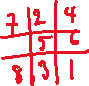 7 2 4
5 6
8 3 1